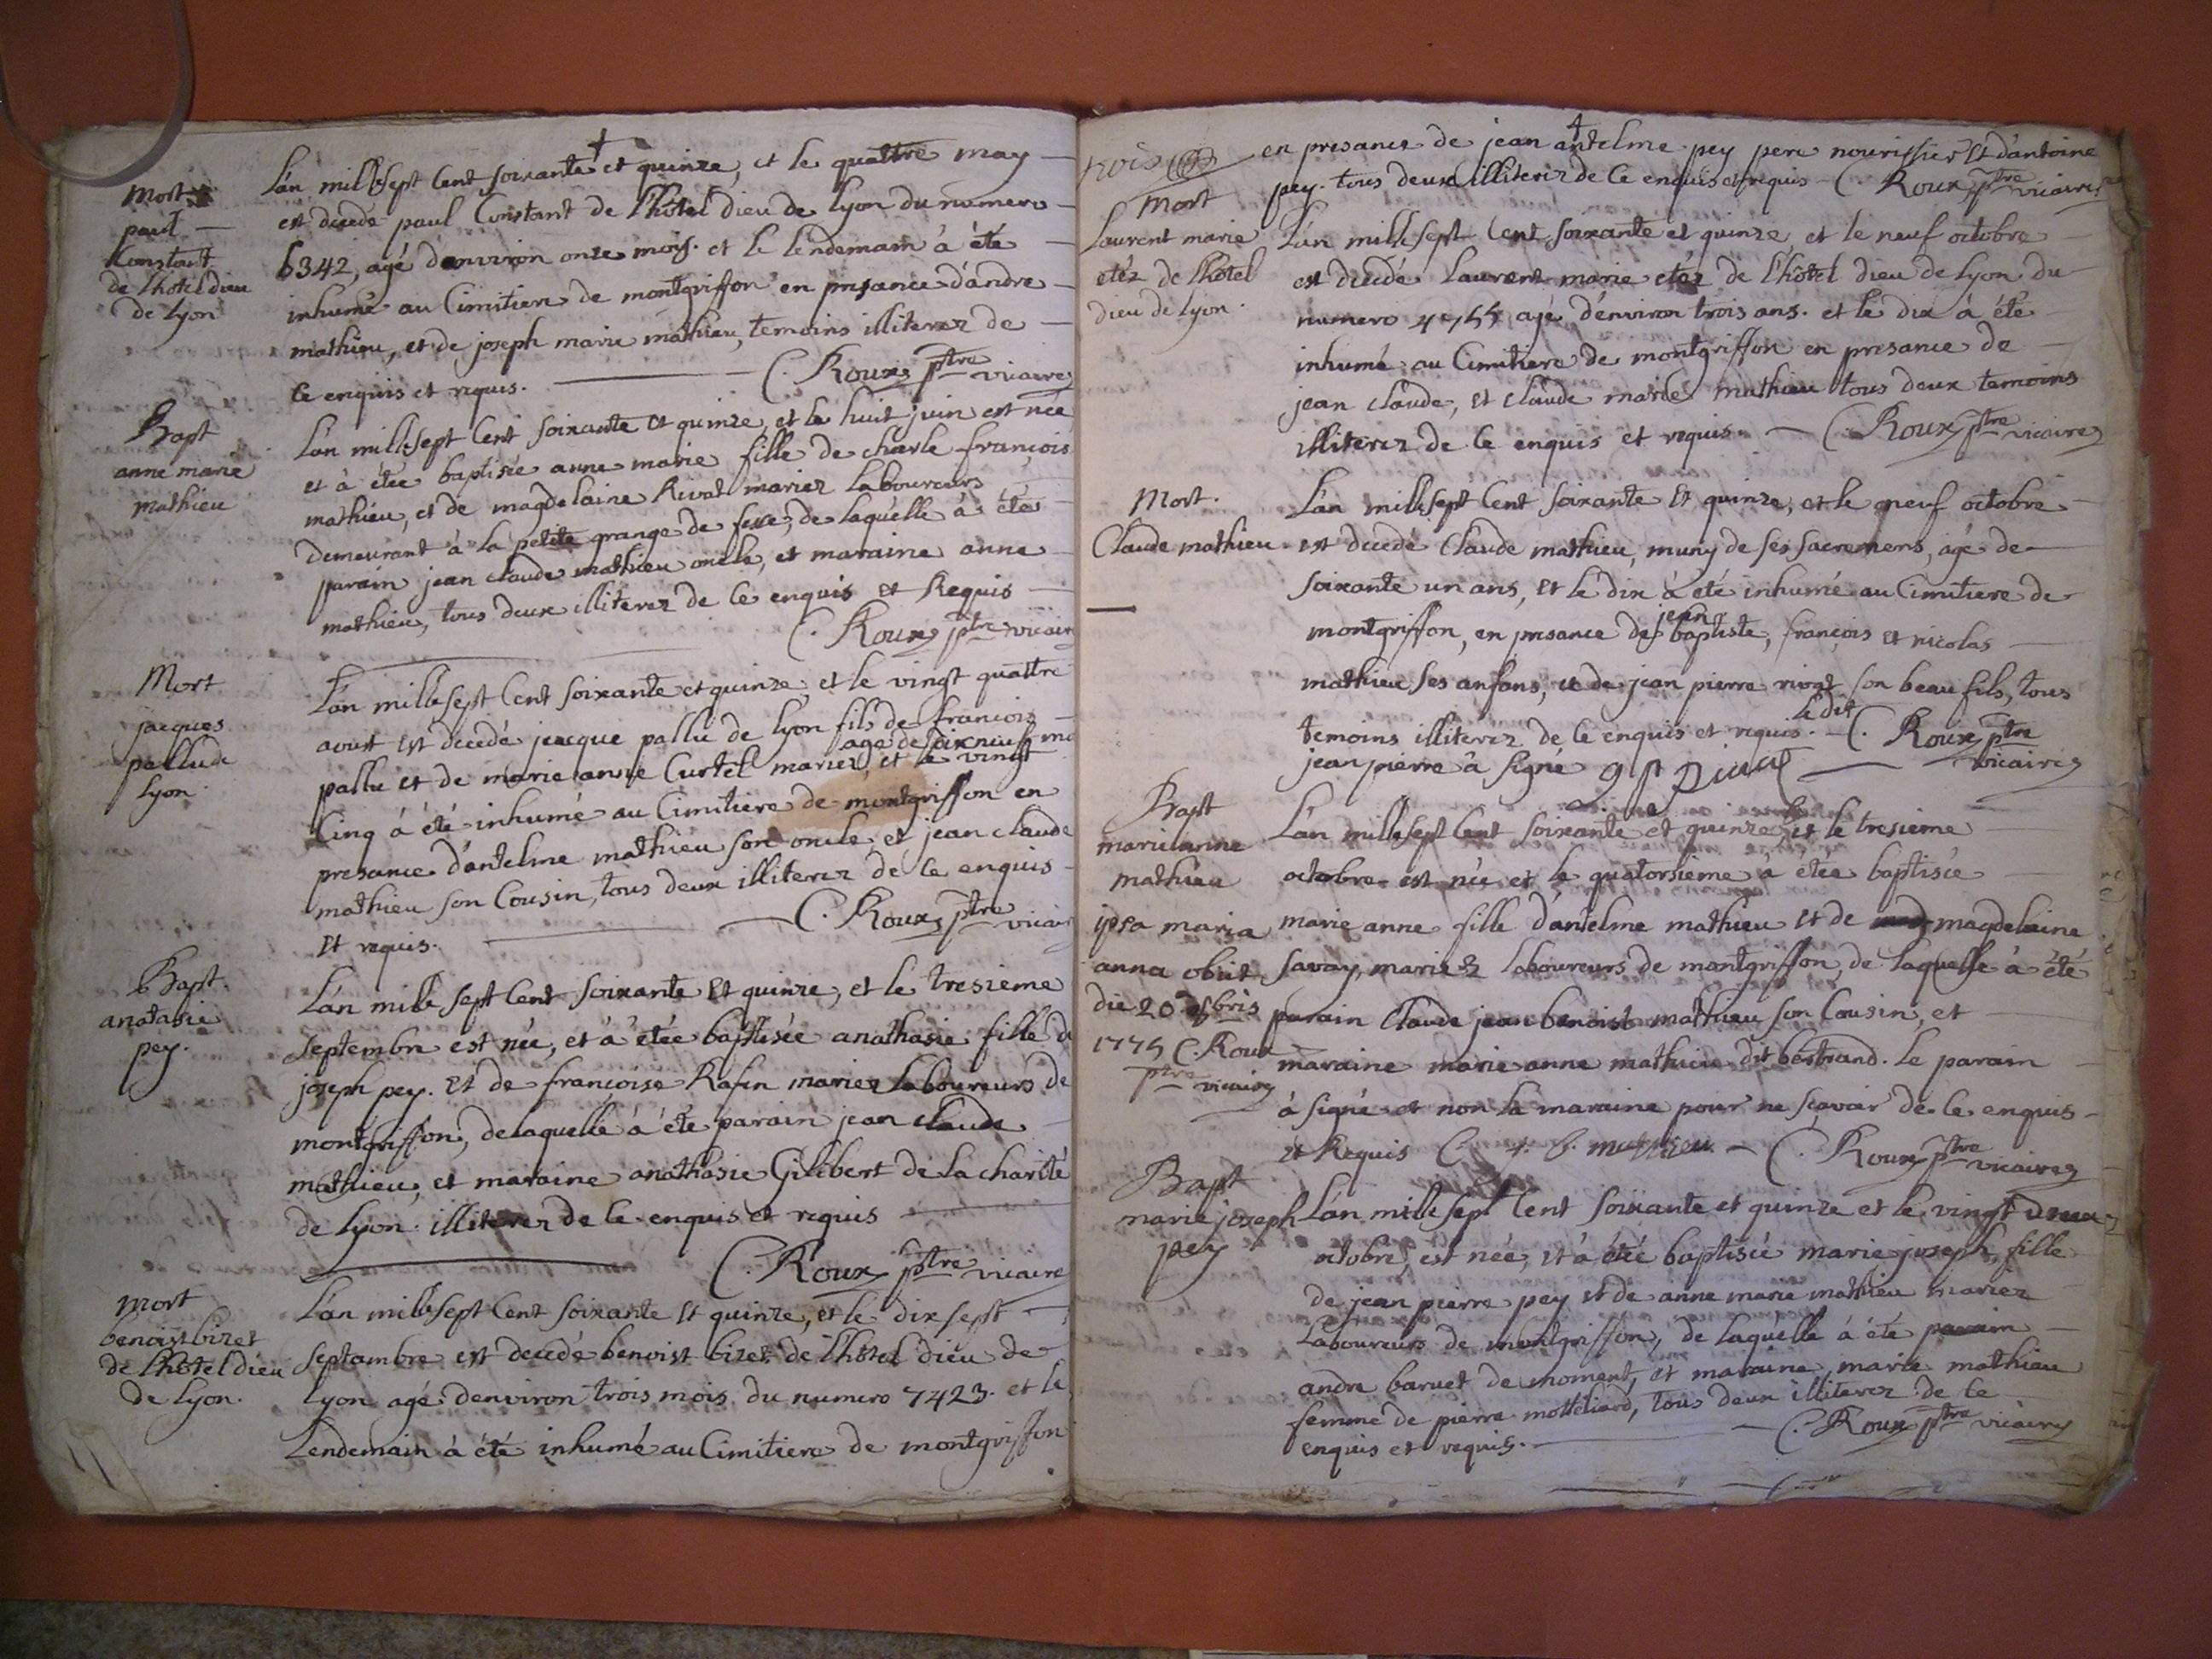 †
Mort
paul
Constant
de l'hôtel dieu
de lyon
L'an mill sept Cent soixante et quinze, et le quattre may
est decedé paul Constant de l'hôtel dieu de lyon du numero
6342, agé d'environ onze mois. et le lendemain à été
inhumé au Cimitiere de montgriffon en presance d'andre
mathieu, et de joseph marie mathieu, temoins illiterez de
ce enquis et requis. C. Roux ptre vicaire
Bapt
anne marie
mathieu
L'an mill sept Cent soixante et quinze, et le huit juin est née
et à étée baptisée anne marie fille de charle françois
mathieu, et de magdelaine Rivat mariez Laboureurs
demeurant à la petite grange de, de laquelle à été
parain jean claude mathieu oncle, et maraine anne
mathieu, tous deux illiterez de ce enquis et Requis
C. Roux ptre vicaire
Mort
jacques
pallu de
lyon.
L'an mille sept Cent soixante et quinze, et le vingt quattre
aoust est decedé jacque pallu de lyon fils de françois
pallu et de marie anne Curtel mariez, agé de dix neuf et le vingt
Cinq á été inhumé au Cimitiere de montgriffon en
presance d'antelme mathieu son oncle, et jean claude
mathieu son Cousin, tous deux illiterez de ce enquis
et requis. C. Roux ptre vicaire
Bapt.
anatasie
pey.
L'an mille sept Cent soixante et quinze, et le tresieme
Septembre est née, et à étée baptisée anathasie fille de
joseph pey. et de françoise Rafin mariez Laboureurs de
montgriffon, de laquelle à été parain jean claude
mathieu, et maraine anathasie Gilibert de la charité
de lyon. illiterez de ce enquis et requis
C. Roux ptre vicaire
mort
benoist bizet
de l'hôtel dieu
de lyon.
L'an mille sept Cent soixante et quinze, et le dix sept
Septambre est decedé benoist bizet de l'hôtel dieu de
lyon agé denviron trois mois du numero 7423. et le
Lendemain à été inhumé au Cimitiere de montgriffon
†
en presance de jean antelme pey pere nourissier et d'antoine
pey. tous deux illiterez de ce enquis et requis C. Roux ptre vicaire
Mort
Laurent marie
etéz de l'hôtel
dieu de lyon.
L'an mille sept Cent soixante et quinze, et le neuf octobre
est decedé Laurent marie etéz de l'hôtel dieu de lyon du
numero agé d'environ trois ans. et le dix à été
inhumé au Cimitiere de montgriffon en presance de
jean claude, et claude marie mathieu tous deux temoins
illiterez de ce enquis et requis. C. Roux ptre vicaire
Mort.
Claude mathieu
L'an mille sept Cent soixante et quinze, et le neuf octobre
est decedé Claude mathieu, muny de ses sacremens, agé de
soixante un ans, et le dix à été inhumé au Cimitiere de
montgriffon, en presance de jean baptiste, françois et nicolas
mathieu ses anfans, et de jean pierre rivat son beau fils, tous
temoins illiterez de ce enquis et requis. le dit C. Roux ptre
jean pierre à signé vicaire
Bapt
marie anne
mathieu
L'an mille sept Cent soixante et quinze, et le tresieme
octobre est née et le quatorsieme à étée baptisée
marie anne fille d'antelme mathieu et de magdelaine
Savay, mariez Laboureurs de montgriffon, de laquelle à été
parain Claude jean benoist mathieu son Cousin, et
maraine marie anne mathieu dit bertrand. le parain
à signé et non la maraine pour ne sçavoir de ce enquis
et Requis C. j. b. mathieu C. Roux ptre vicaire
ipsa maria
anna obiit
die 20 bris
1775 C. Roux
ptre vicaire
Bapt
marie joseph
pey
L'an mille sept Cent soixante et quinze et le vingt deux
octobre, est née, et à étée baptisée marie joseph fille
de jean pierre pey et de anne marie mathieu mariez
Laboureurs de montgriffon, de laquelle à été parain
andre baruet de moment, et maraine marie mathieu
femme de pierre motteliard, tous deux illiterez de ce
enquis et requis. C. Roux ptre vicaire